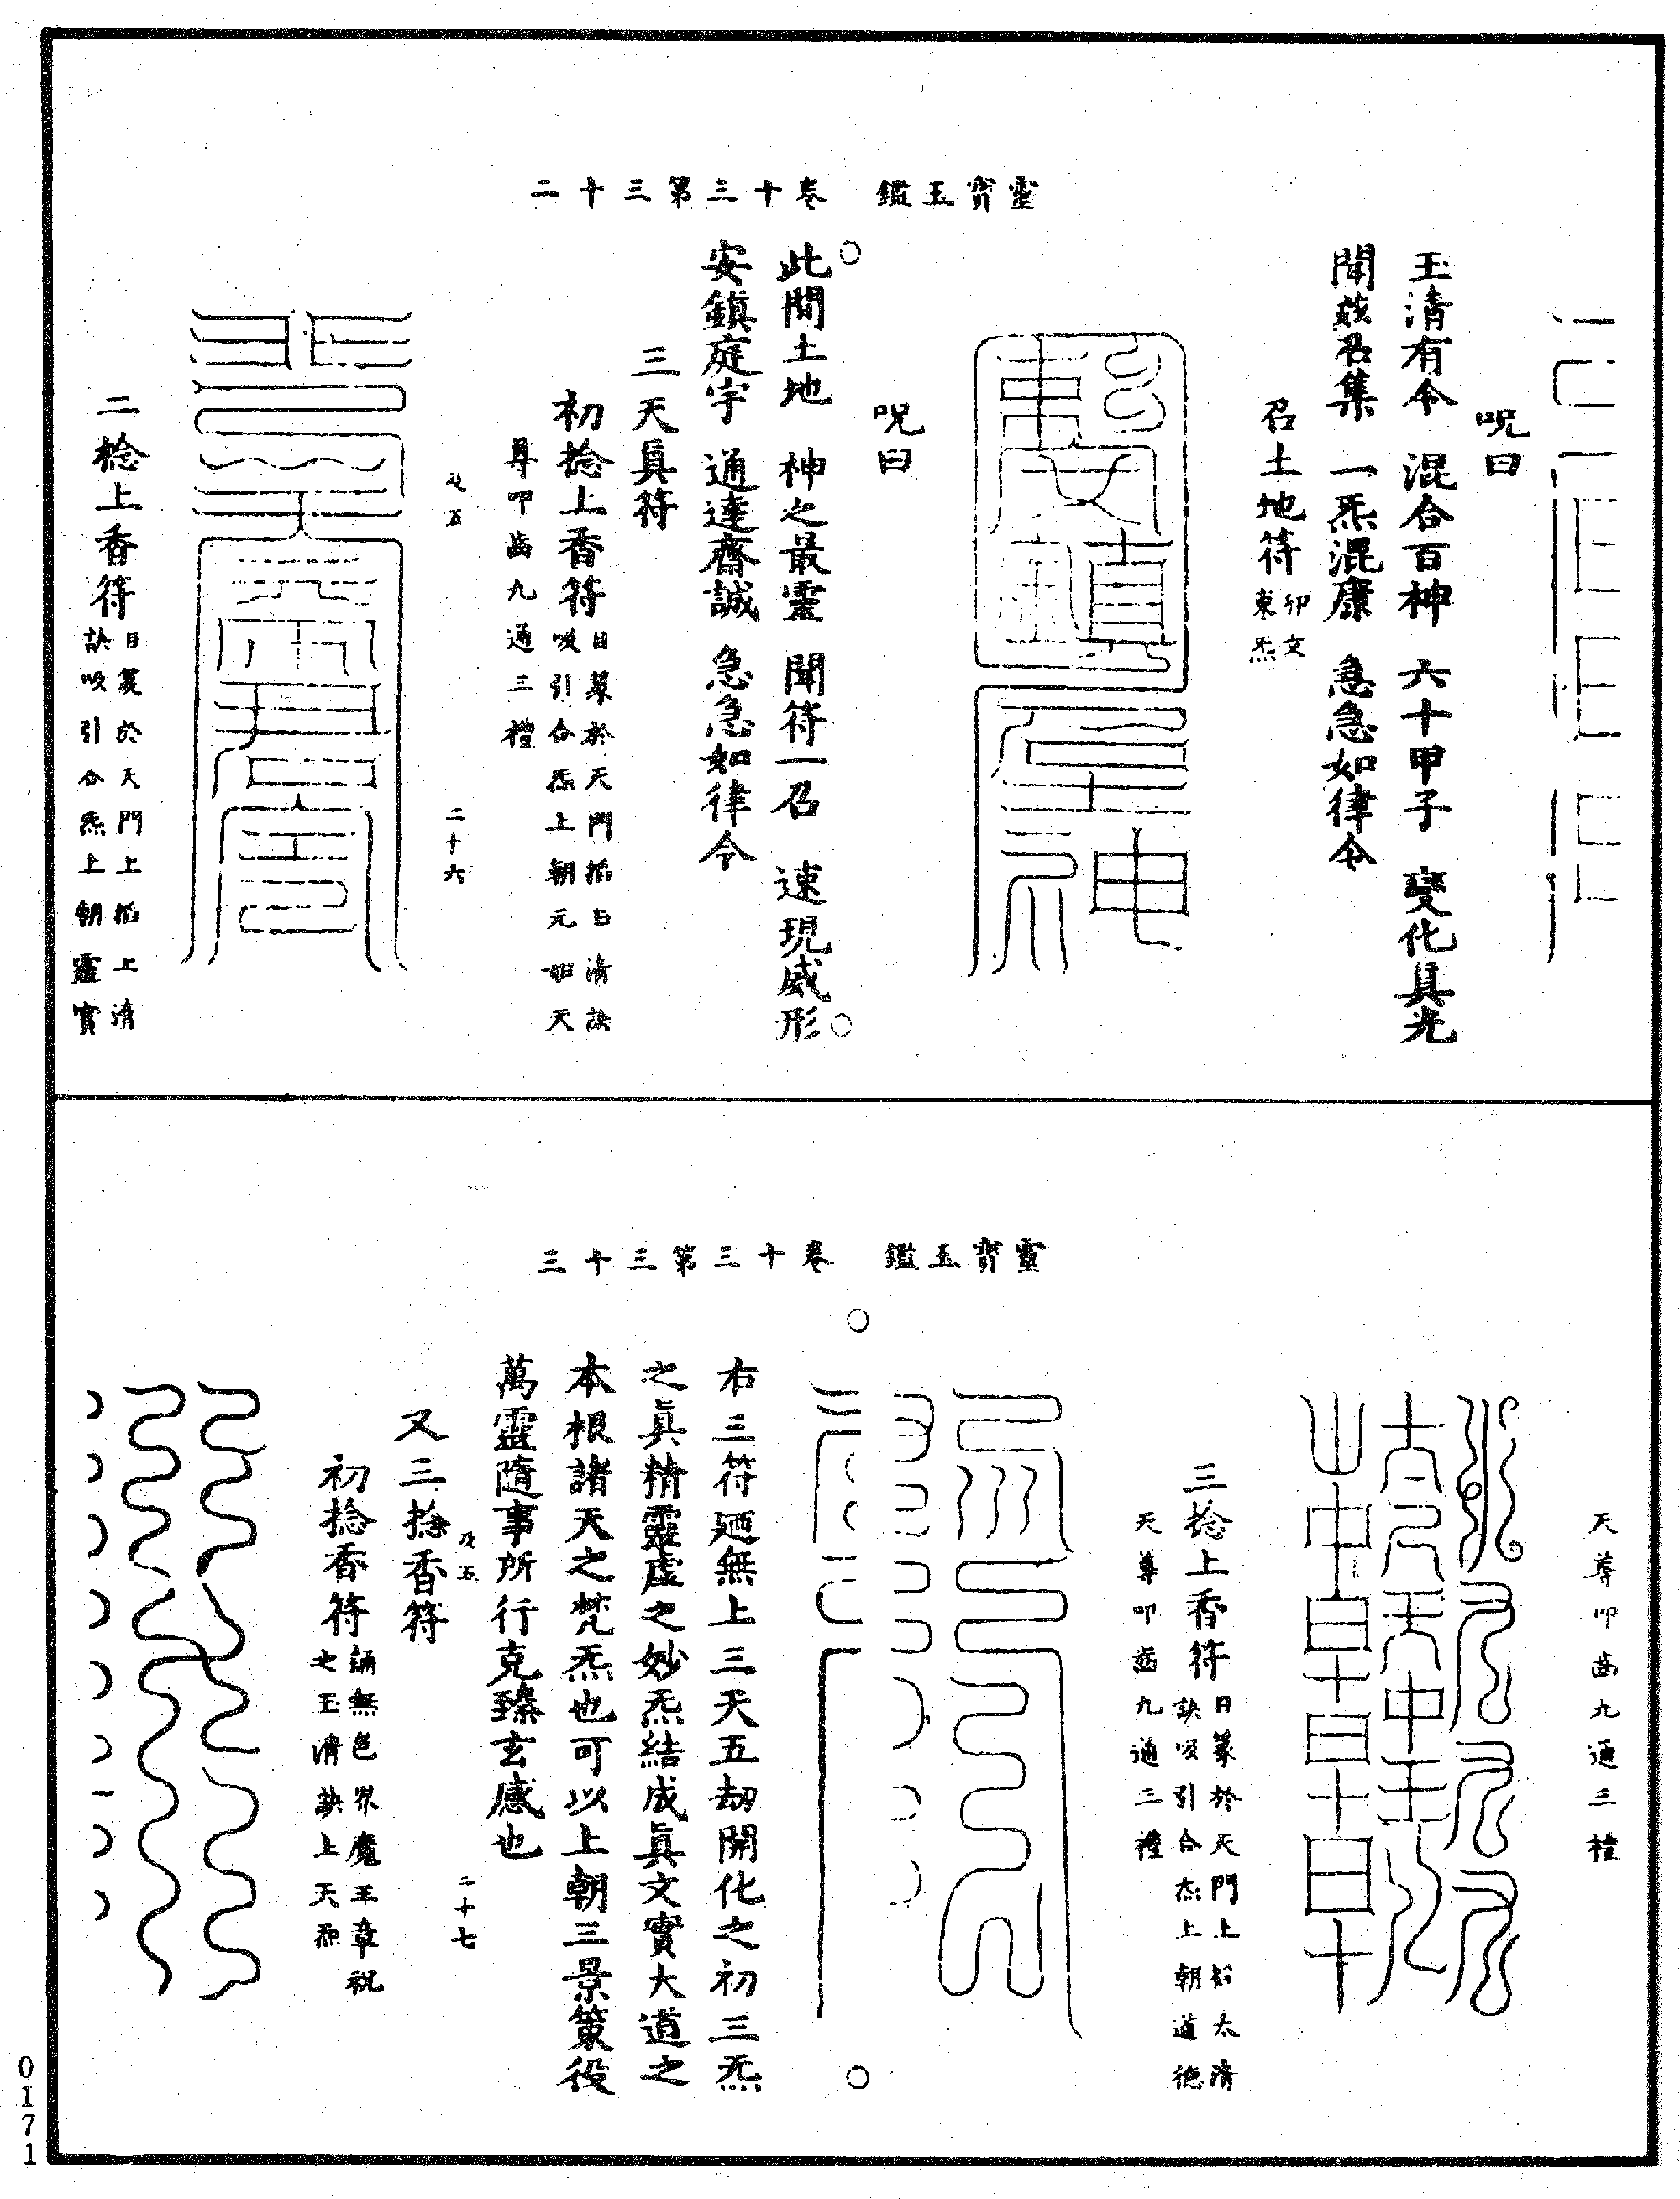 靈寳玉鑑 卷十三第三十二
呪曰
玉清有令 混合百神 六十甲子 變化真光
聞茲召集 一炁混康 急急如律令
召土地符 卯文東炁
呪曰
此間土地 神之最靈 聞符一召 速現威形
安鎮庭宇 通達齋誠 急急如律令
三天真符
初捻上香符 目篆於天門掐玉清訣
吸引合炁上朝元始天
尊叩齒九通三禮
及五 二十六
二捻上香符 目篆於天門上掐上清
訣吸引合炁上朝靈寶
靈寳玉鑑 卷十三第三十三
天尊叩齒九通三禮
三捻上香符 目篆於天門上掐太清
訣吸引合炁上朝道德
天尊叩齒九通三禮
右三符廼無上三天五劫開化之初三炁
之真精靈虛之妙炁結成真文實大道之
本根諸天之梵炁也可以上朝三景策役
萬靈隨事所行克臻玄感也
及五 二十七
又三捻香符
初捻香符 誦無色界魔王章祝
之玉清訣上天炁
0171